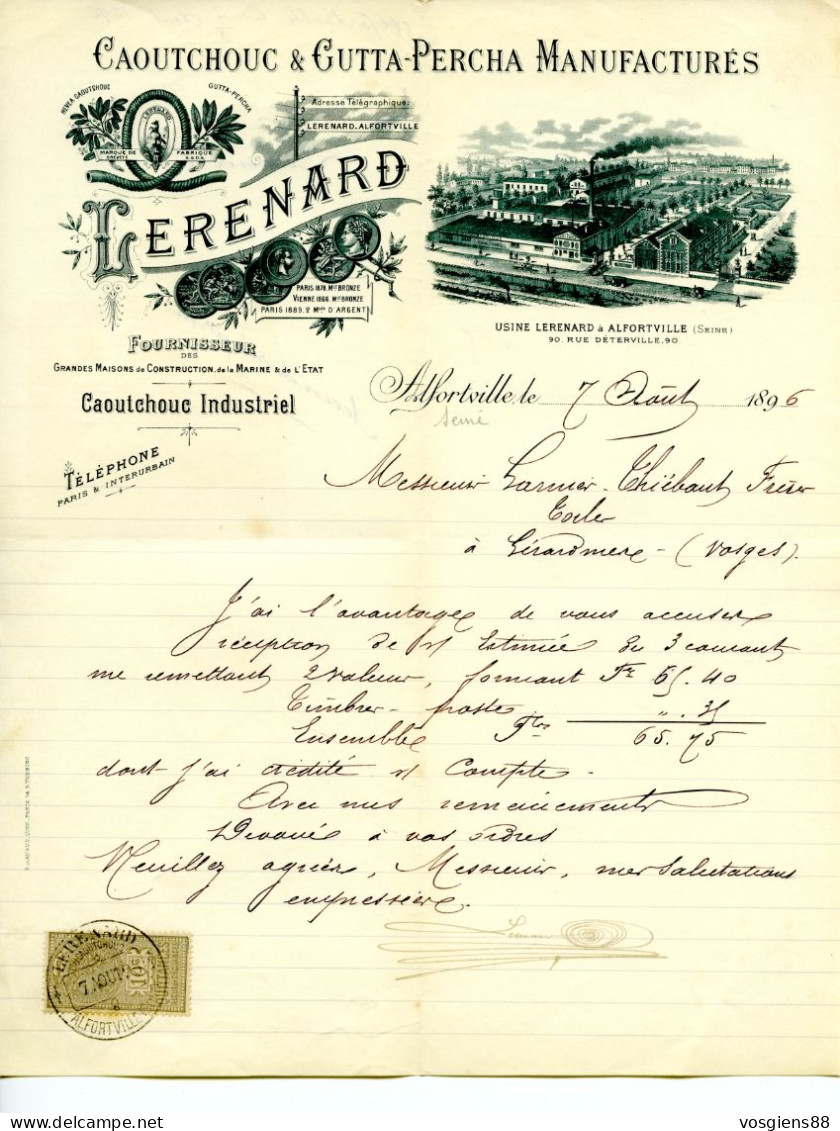 CAOUTCHOUC & GUTTA-PERCHA MANUFACTURÉS
HEVEA CAOUTCHOUC
GUTTA-PERCHA
LERENARD
MARQUE DE FABRIQUE
BREVETÉ S.G.D.G.
Adresse Télégraphique:
LERENARD. ALFORTVILLE
LERENARD
PARIS 1878. Mlle BRONZE
VIENNE 1866. Mlle BRONZE
PARIS 1889. 2 Mlles D'ARGENT
USINE LERENARD à ALFORTVILLE (SEINE)
90. RUE DÉTERVILLE, 90
FOURNISSEUR
DES
GRANDES MAISONS de CONSTRUCTION, de la MARINE & de L'ETAT
Caoutchouc Industriel
TÉLÉPHONE
PARIS & INTERURBAIN
Alfortville, le 7 Août 1896
Seine
Messieurs Garnier-Thiébaut Frères
à Gérardmer - (Vosges).
J'ai l'avantage de vous accuser
réception de v/ Estimée du 3 courant
me remettant 2 valeurs, formant Fr 65.40
Timbres-poste „ .35
Ensemble Frs 65.75
dont j'ai crédité v/ Compte.
Avec mes remerciements
Dévoué à vos ordres
Veuillez agréer, Messieurs, mes Salutations
empressées.
LERENARD
CAOUTCHOUC
7 AOUT
ALFORTVILLE
vosgiens88